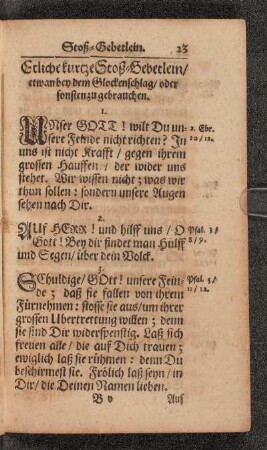 Stoß-Gebetlein. 23
Etliche kurtze Stoß-Gebetlein/
etwan bey dem Glockenschlag/ oder
sonsten zu gebrauchen.
1.
UNser GOTT! wilt Du un- 2. Chr.
sere Feinde nicht richten? In 20/12.
uns ist nicht Krafft/ gegen ihrem
grossen Hauffen/ der wider uns
stehet. Wir wissen nicht; was wir
thun sollen: sondern unsere Augen
sehen nach Dir.
2.
Auf HERR! und hilff uns/ O Psal. 3/
Gott! Bey dir findet man Hülff 8/9.
und Segen/ über dein Volck.
3.
Schuldige/ GOtt! unsere Fein- Psal. 5/
de; daß sie fallen von ihrem 11/12.
Fürnehmen: stosse sie aus/ um ihrer
grossen Ubertrettung willen; denn
sie sind Dir widerspenstig. Laß sich
freuen alle/ die auf Dich trauen;
ewiglich laß sie rühmen: denn Du
beschirmest sie. Frölich laß seyn/ in
Dir/ die Deinen Namen lieben.
B v Auf